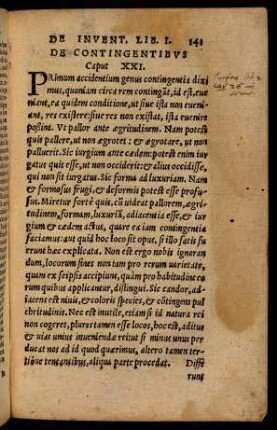 DE INVENT. LIB. I. 141
DE CONTINGENTIBVS
Caput XXI.
PRimum accidentium genus contingentia dixi
mus, quoniam circa rem contingãt, id est, eue
niant, ea quidem conditione, ut siue ista non eueni-
ant, res existere: siue res non existat, ista euenire
possint. Vt pallor ante ægritudinem. Nam potest
quis pallere, ut non ægrotet: & ægrotare, ut non
palluerit. Sic iurgium ante cædem: potest enim iur
gatus quis esse, ut non occiderit: & alius occidisse,
qui non sit iurgatus. Sic forma ad luxuriam. Nam
& formosus frugi, & deformis potest esse profu-
sus. Miretur fortè quis, cũ uideat pallorem, ægri-
tudinem, formam, luxuriã, adiacentia esse, & iur
gium & cædem actus, quare ea iam contingentia
faciamus: aut quid hoc loco sit opus, si illo satis fu
erunt hæc explicata. Non est ergo nobis ignoran
dum, locorum fines non tam pro rerum uarietate,
quàm ex seipsis accipiun, quàm pro habitudine ea
rum quibus applicantur, distingui. Sic candor, ad-
iacens est niuis, & coloris species, & cõtingens pul
chritudinis. Nec est inutile, etiam si id natura rei
non cogeret, plures tamen esse locos, hoc est, aditus
& uias unius inueniendæ rei: ut si minus unus per
ducat nos ad id quod quærimus, alter tamen ter-
tiusque tentantibus, aliqua parte procedat.
Diffe
runt